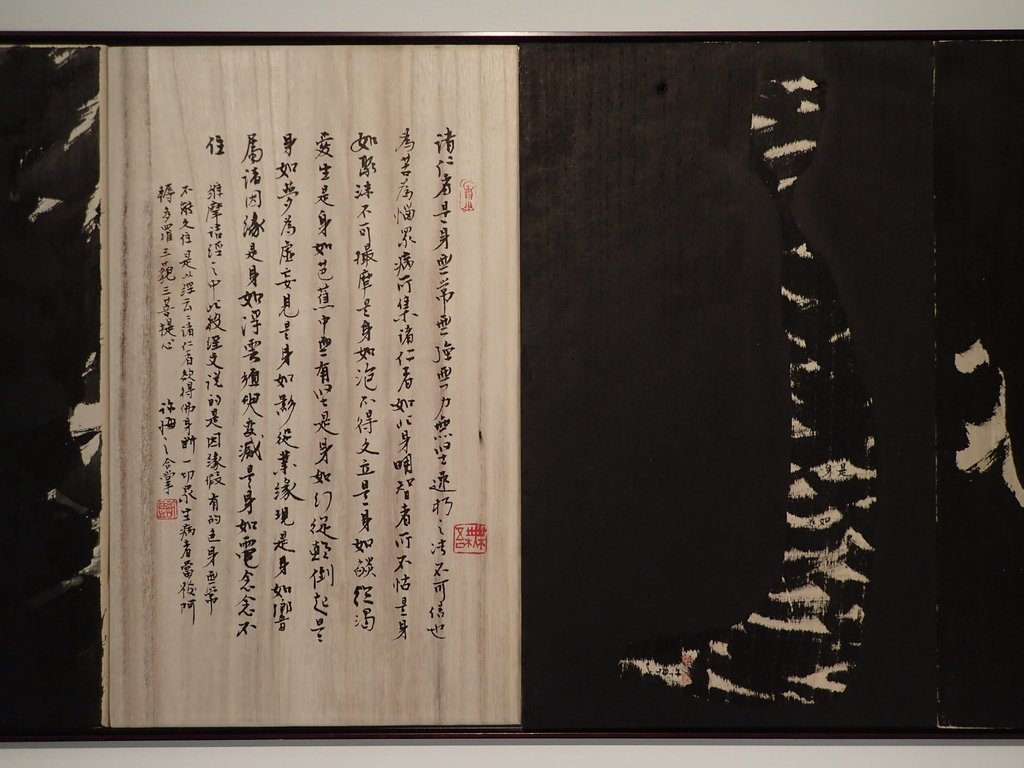 诸仁者是身無常無強無力無堅速朽之法不可信也
為苦為惱眾病所集诸仁者如此身明智者所不怙是身
如聚沫不可撮摩是身如泡不得久立是身如燄從渴
愛生是身如芭蕉中無有堅是身如幻從顛倒起是
身如夢為虛妄見是身如影從業緣現是身如響
属诸因缘是身如浮雲須臾变滅是身如電念念不
住
維摩诘经之中此段经文说的是因缘假有的色身無常
不能久住是以经云诸仁者欲得佛身断一切眾生病者當發阿
耨多羅三藐三菩提心
許悔之合掌